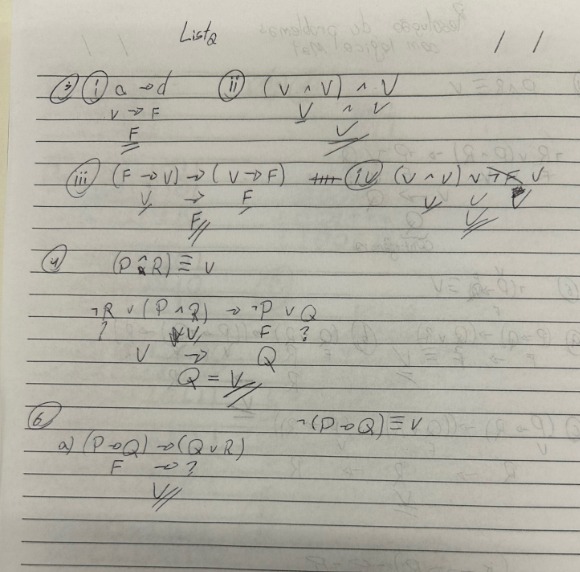 Lista
/ /
3) i) a → d ii) (V ∧ V) ∧ V
V → F V ∧ V
F V
iii) (F → V) → (V → F) iv) (V ∧ V) ∨ ¬F V
V → F V ∨ V
F V
4) (P ∧ R) ≡ V
¬R ∨ (P ∧ R) → ¬P ∨ Q
? V F ?
V → Q
Q = V
6) ¬(P → Q) ≡ V
a) (P → Q) → (Q ∨ R)
F → ?
V